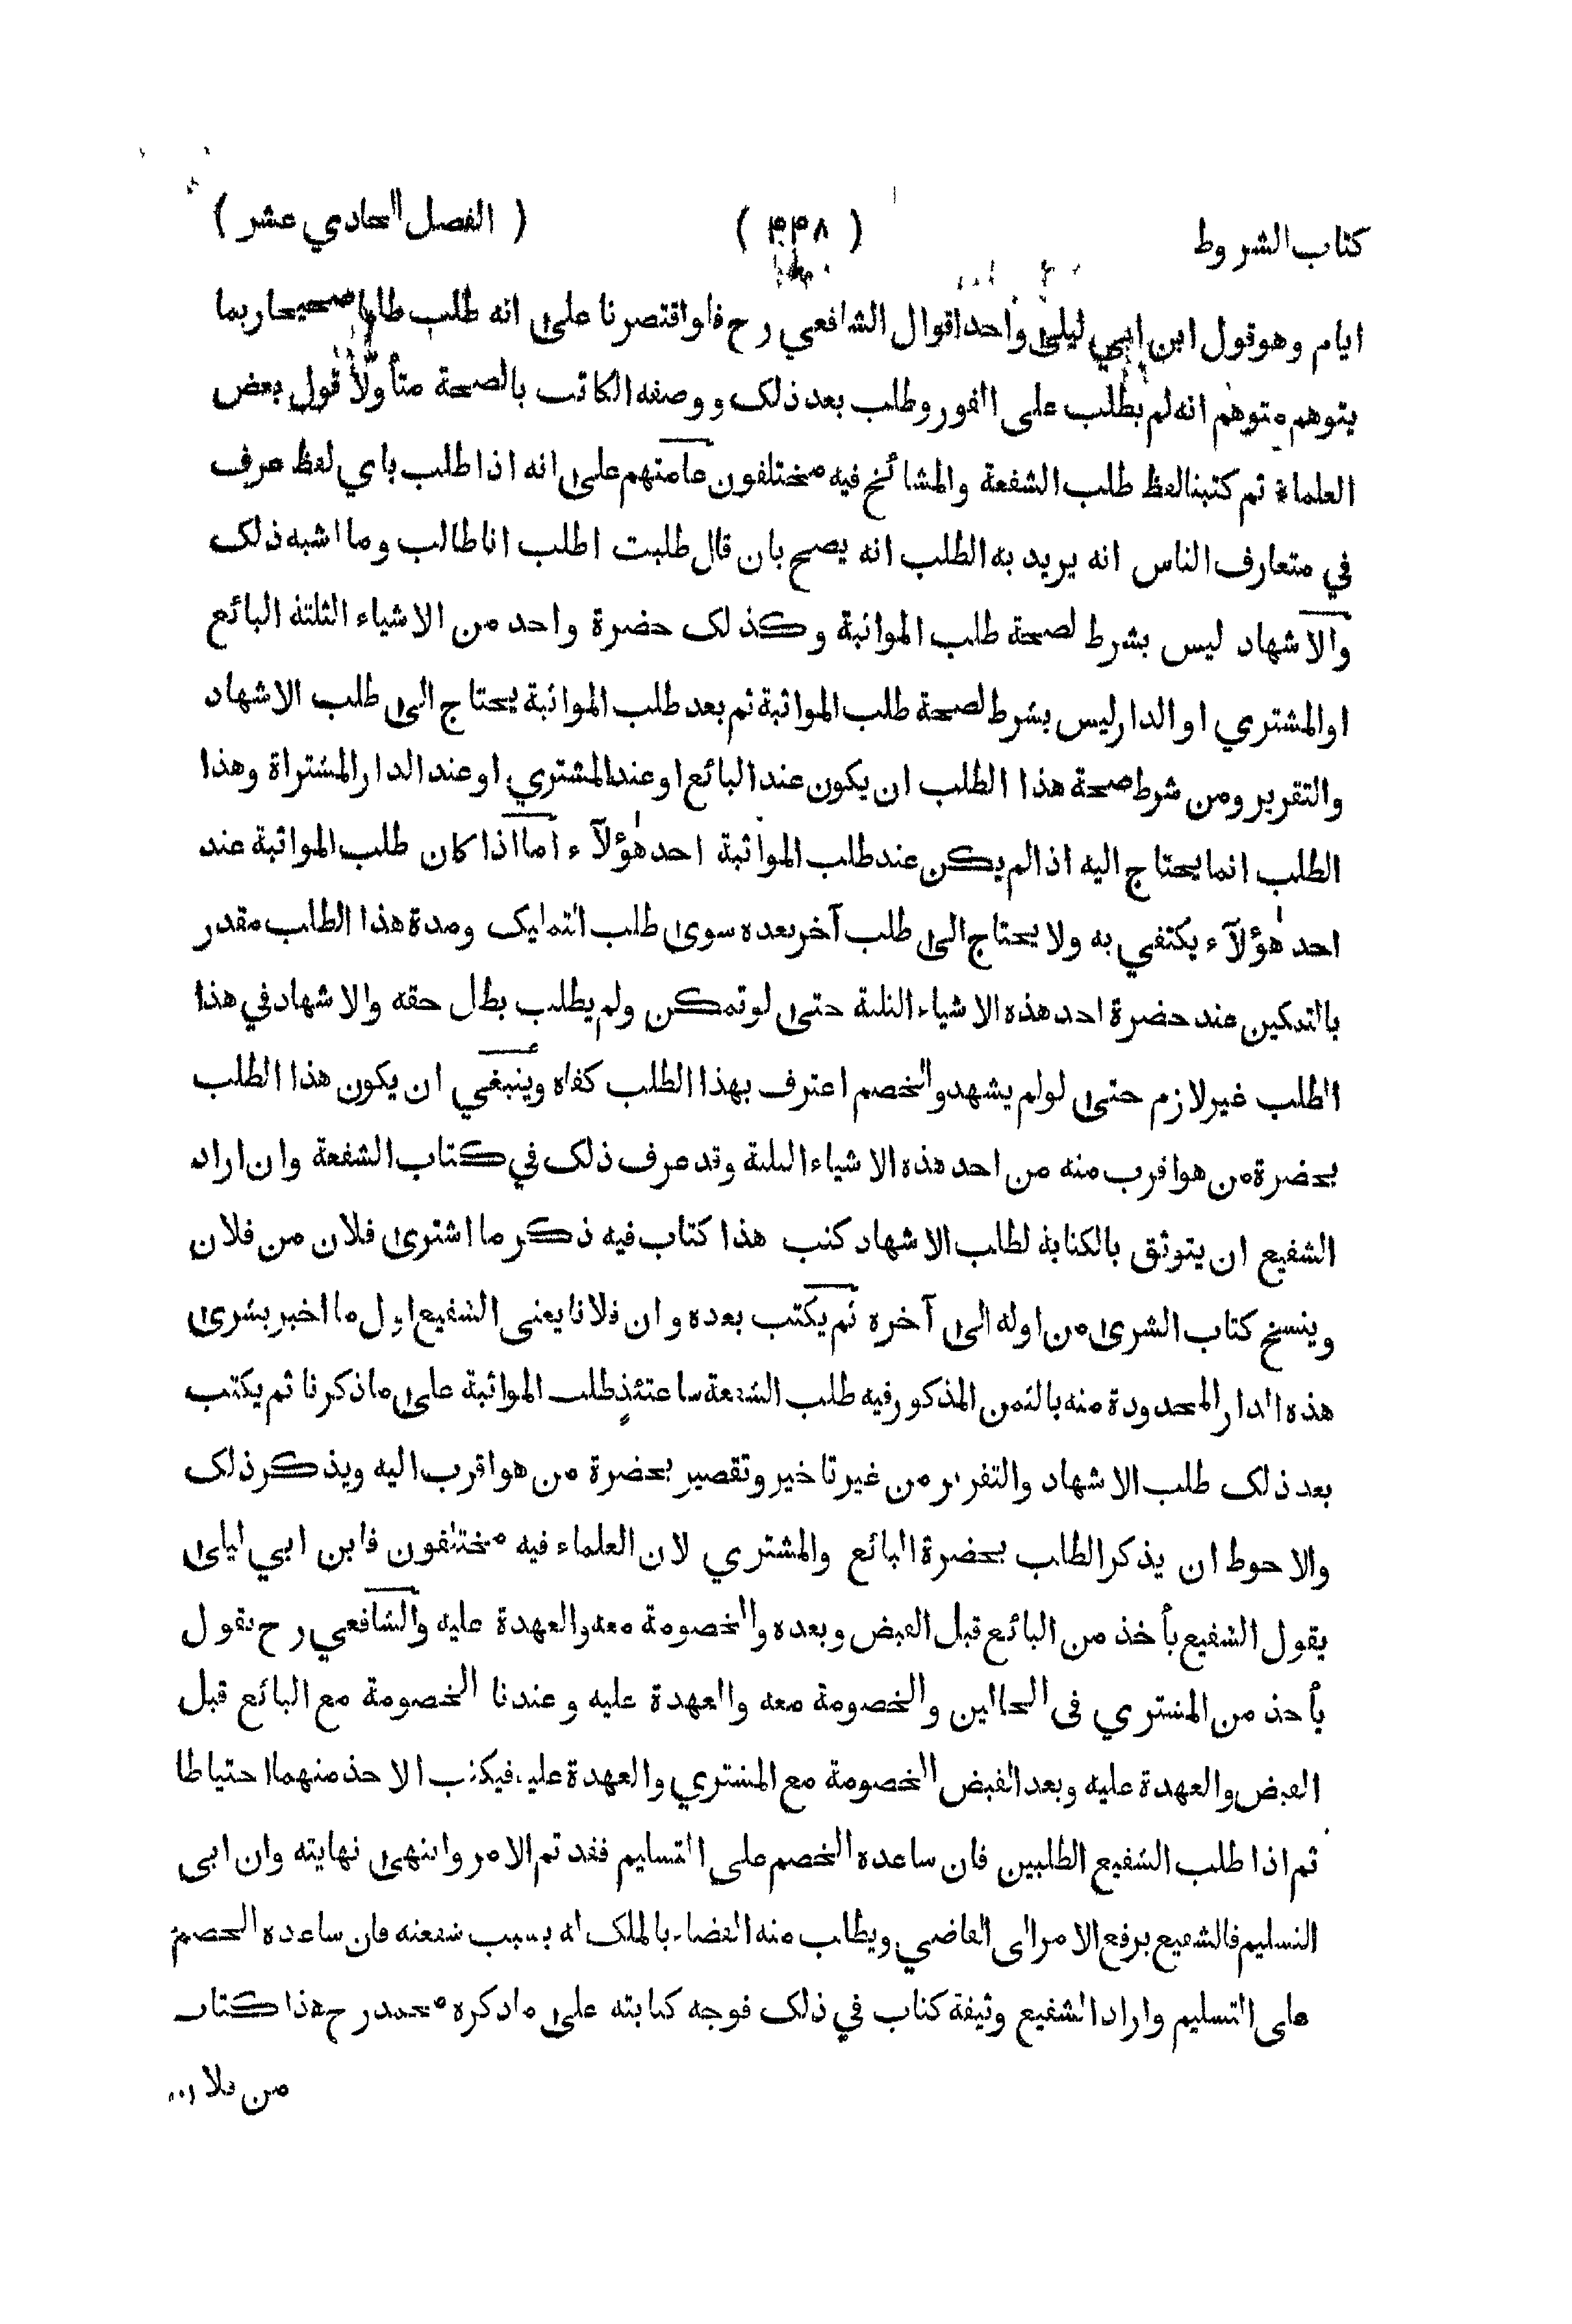 كتاب الشروط ( ٣٣٨ ) ( الفصل الحادي عشر )
ايام وهو قول ابن ابي ليلى واحد اقوال الشافعي رح فلو اقتصرنا على انه طلب طلبا صحيحا ربما
يتوهم متوهم انه لم يطلب على الفور وطلب بعد ذلك ووصفه الكاتب بالصحة متأولاً قول بعض
العلماء ثم كتبنا لفظ طلب الشفعة والمشائخ فيه مختلفون عامتهم على انه اذا طلب باي لفظ عرف
في متعارف الناس انه يريد به الطلب انه يصح بان قال طلبت اطلب انا طالب وما اشبه ذلك
والاشهاد ليس بشرط لصحة طلب المواثبة وكذلك حضرة واحد من الاشياء الثلثة البائع
او المشتري او الدار ليس بشرط لصحة طلب المواثبة ثم بعد طلب المواثبة يحتاج الى طلب الاشهاد
والتقرير ومن شرط صحة هذا الطلب ان يكون عند البائع او عند المشتري او عند الدار المشتراة وهذا
الطلب انما يحتاج اليه اذا لم يكن عند طلب المواثبة احد هؤلآء اما اذا كان طلب المواثبة عند
احد هؤلآء يكتفي به ولا يحتاج الى طلب آخر بعده سوى طلب التمليك ومدة هذا الطلب مقدر
بالتمكين عند حضرة احد هذه الاشياء الثلثة حتى لو تمكن ولم يطلب بطل حقه والاشهاد في هذا
الطلب غير لازم حتى لو لم يشهد والخصم اعترف بهذا الطلب كفاه وينبغي ان يكون هذا الطلب
بحضرة من هو اقرب منه من احد هذه الاشياء الثلثة وقد عرف ذلك في كتاب الشفعة وان اراد
الشفيع ان يتوثق بالكتابة لطلب الاشهاد كتب هذا كتاب فيه ذكر ما اشترى فلان من فلان
وينسخ كتاب الشرى من اوله الى آخره ثم يكتب بعده وان فلانا يعنى الشفيع اول ما اخبر بشرى
هذه الدار المحدودة منه بالثمن المذكور فيه طلب الشفعة ساعتئذٍ طلب المواثبة على ما ذكرنا ثم يكتب
بعد ذلك طلب الاشهاد والتقرير من غير تاخير وتقصير بحضرة من هو اقرب اليه ويذكر ذلك
والاحوط ان يذكر الطلب بحضرة البائع والمشتري لان العلماء فيه مختلفون فابن ابي ليلى
يقول الشفيع يأخذ من البائع قبل القبض وبعده والخصومة معه والعهدة عليه والشافعي رح يقول
يأخذ من المشتري فى الحالين والخصومة معه والعهدة عليه وعندنا الخصومة مع البائع قبل
القبض والعهدة عليه وبعد القبض الخصومة مع المشتري والعهدة عليه فيكتب الاخذ منهما احتياطا
ثم اذا طلب الشفيع الطلبين فان ساعده الخصم على التسليم فقد تم الامر وانتهى نهايته وان ابى
التسليم فالشفيع يرفع الامر الى القاضي ويطلب منه القضاء بالملك له بسبب شفعته فان ساعده الخصم
على التسليم واراد الشفيع وثيقة كتاب في ذلك فوجه كتابته على ما ذكره محمد رح هذا كتاب
من فلان